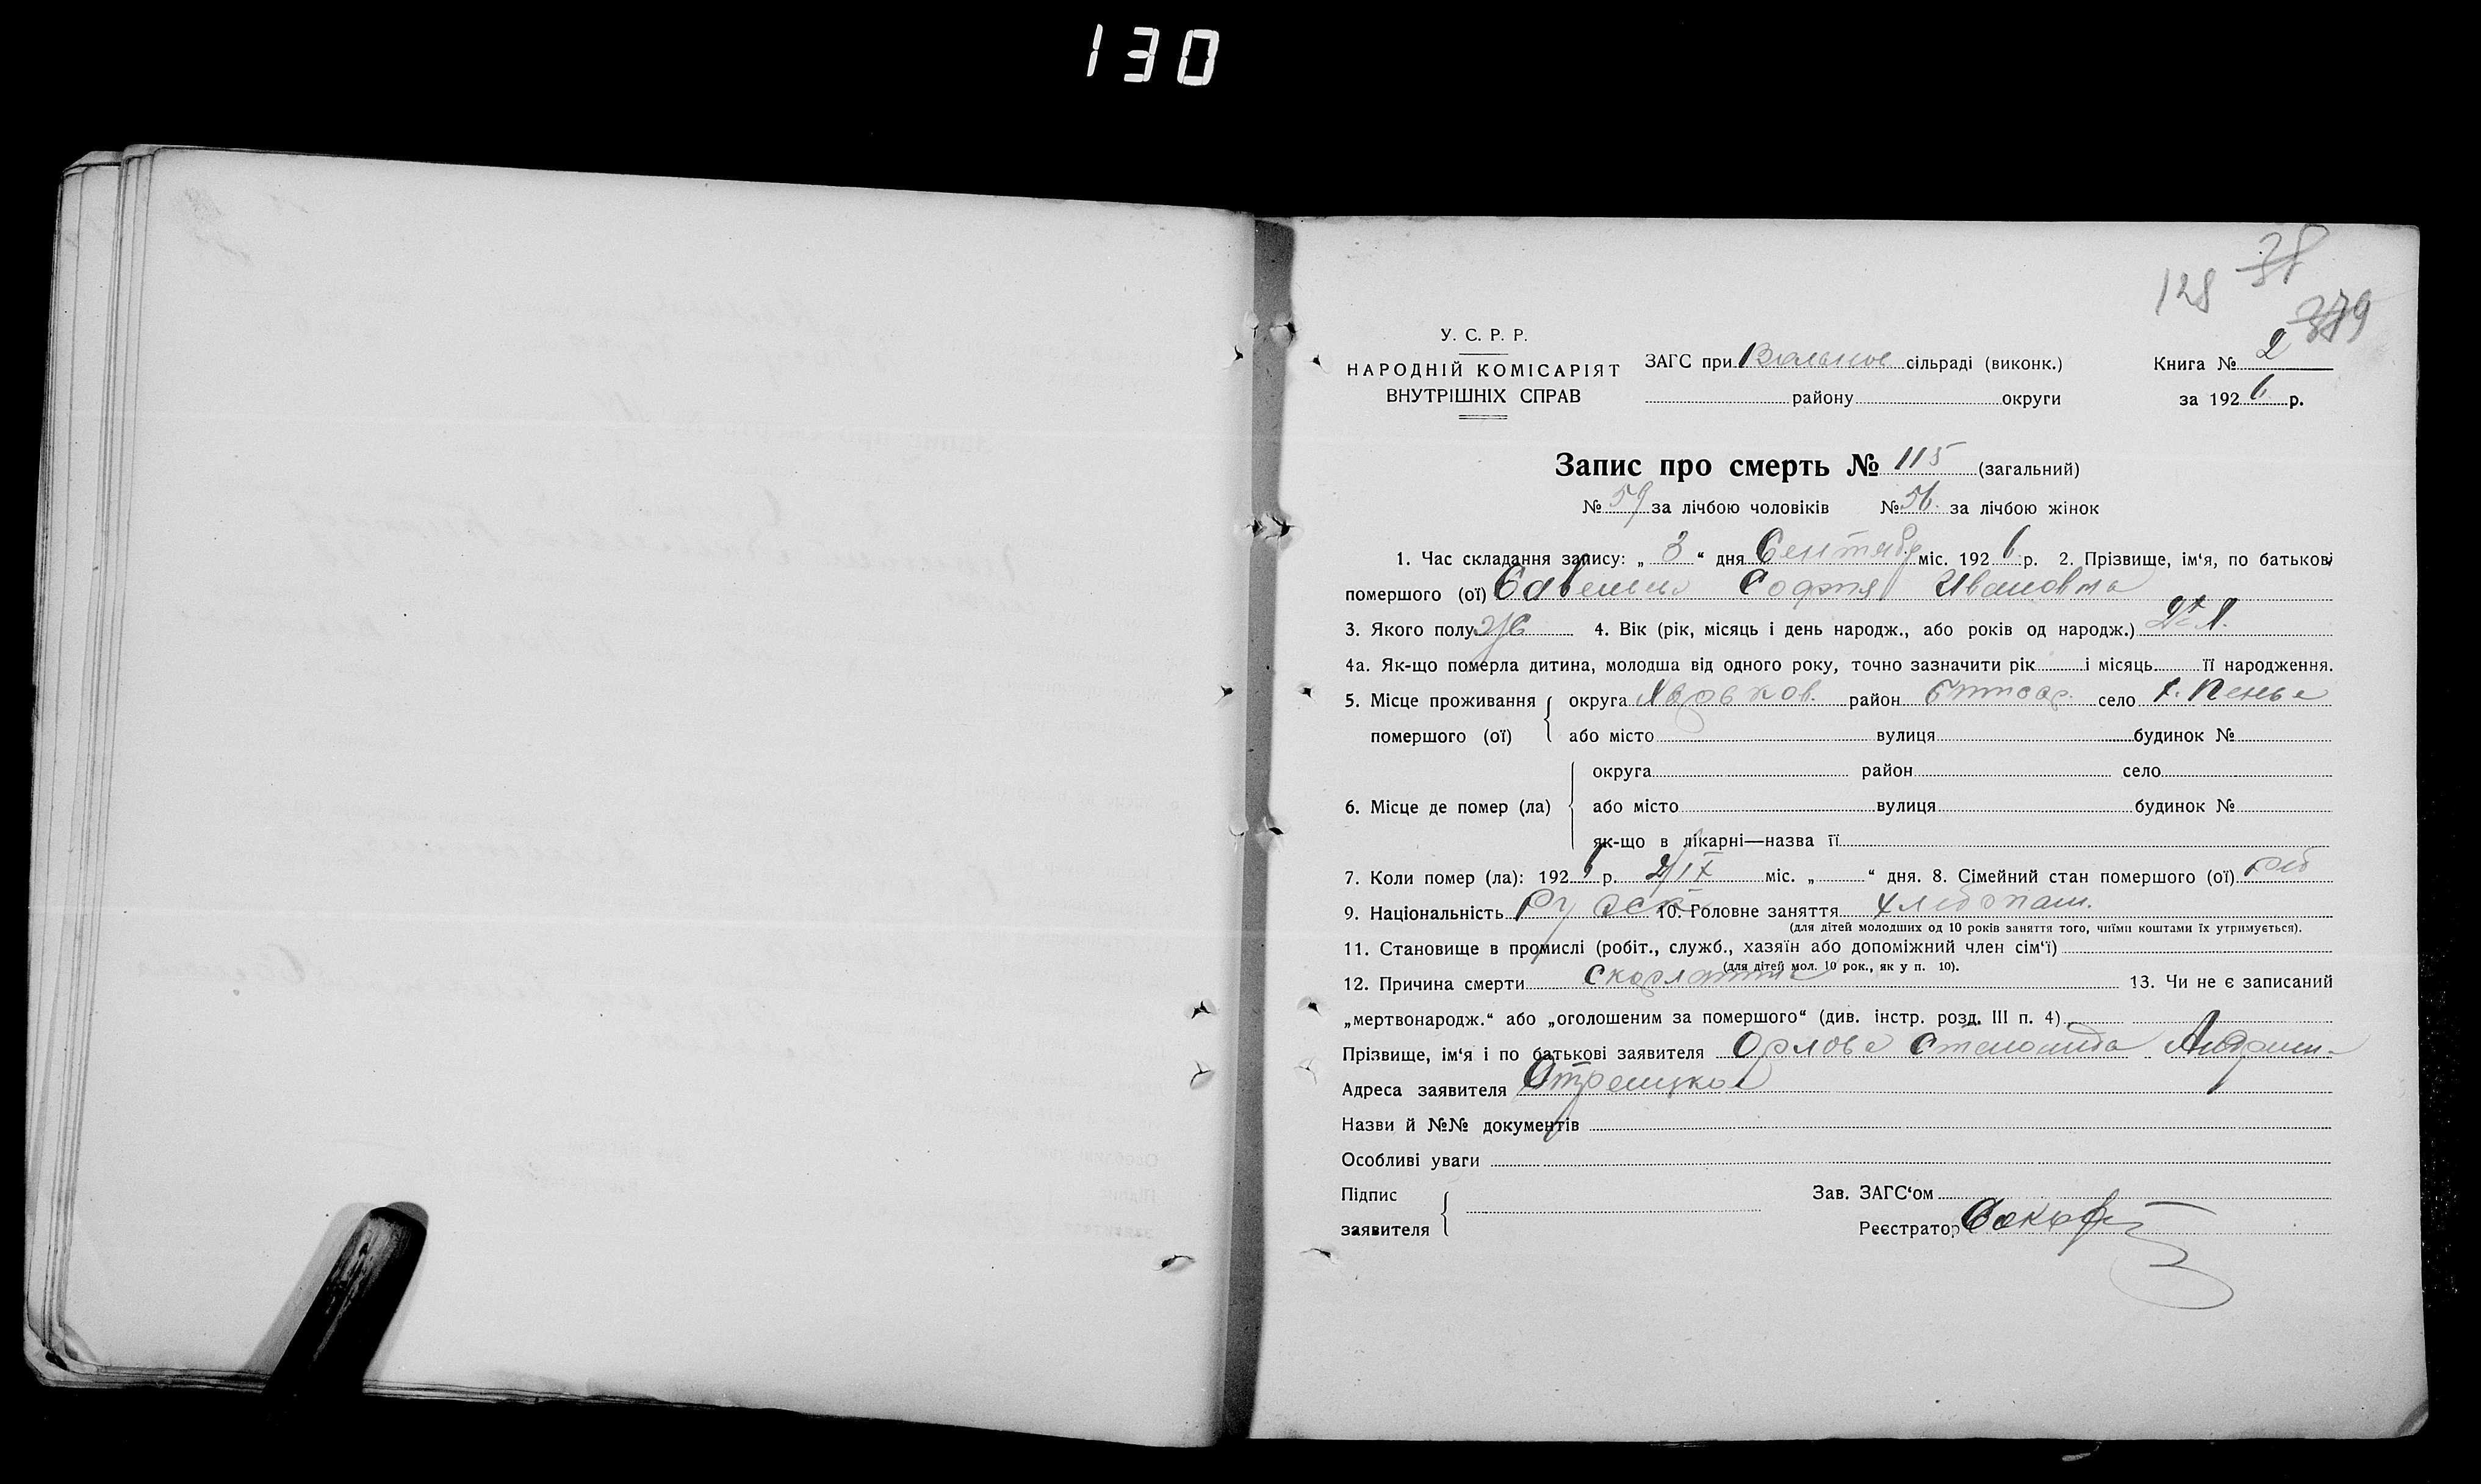 130
128 38
379
У. С. Р. Р.
НАРОДНІЙ КОМІСАРІЯТ
ВНУТРІШНІХ СПРАВ
ЗАГС при Вольное сільраді (виконк.)
району округи
Книга № 2
за 1926 р.
Запис про смерть № 115 (загальний)
№ 59 за лічбою чоловіків № 56 за лічбою жінок
1. Час складання запису: „ 3 “ дня Сентябр міс. 1926 р. 2. Прізвище, ім‘я, по батькові
помершого (ої) Софія Ивановна
3. Якого полу ж 4. Вік (рік, місяць і день народж., або років од народж.)
4а. Як-що померла дитина, молодша від одного року, точно зазначити рік і місяць її народження.
5. Місце проживання
помершого (ої)
округа Харьков. район село х. Пенье
або місто вулиця будинок №
6. Місце де помер (ла)
округа район село
або місто вулиця будинок №
як-що в лікарні—назва її
7. Коли помер (ла): 1926 р. 2/IX міс. „ “ дня. 8. Сімейний стан помершого (ої) реб
9. Національність Русск 10. Головне заняття хлебопаш.
(для дітей молодших од 10 років заняття того, чиїми коштами їх утримується).
11. Становище в промислі (робіт., служб., хазяїн або допоміжний член сім‘ї)
(для дітей мол. 10 рок., як у п. 10).
12. Причина смерти скарлатина 13. Чи не є записаний
„мертвонародж.“ або „оголошеним за помершого“ (див. інстр. розд. III п. 4)
Прізвище, ім‘я і по батькові заявителя Орлова Степанида Андреи-
Адреса заявителя
Назви й №№ документів
Особливі уваги
Підпис
заявителя
Зав. ЗАГС‘ом
Реєстратор